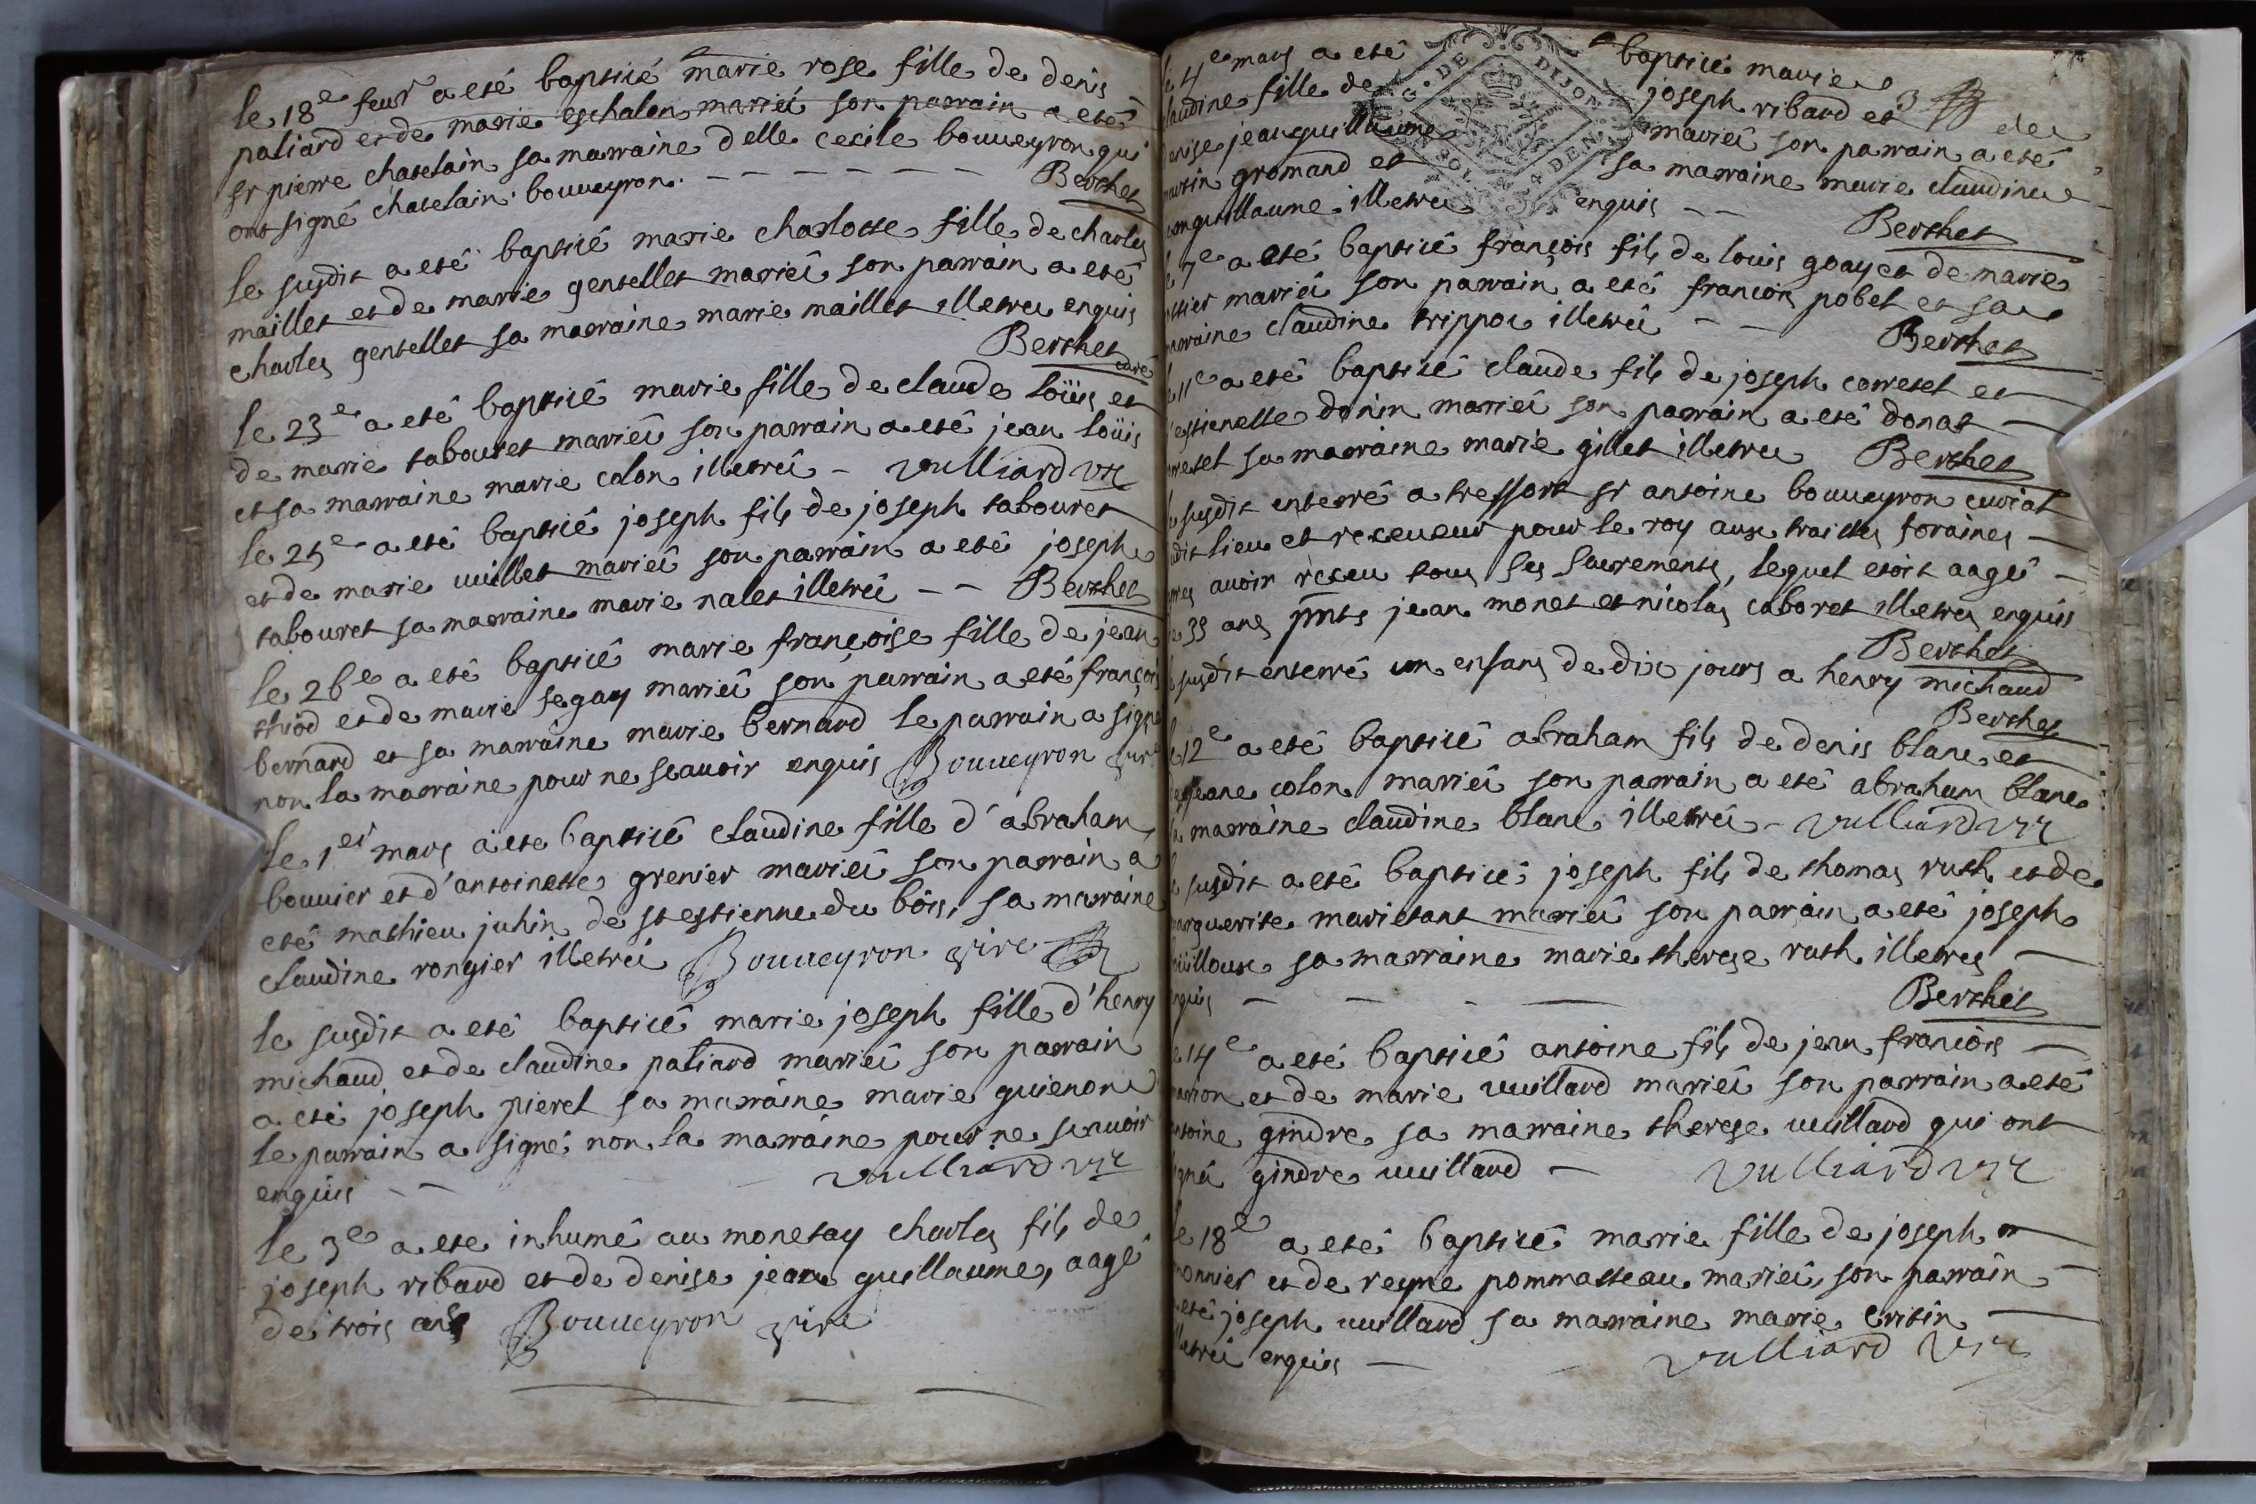 le 18e feur a eté baptisé marie rose fille de denis
paliard et de marie eschalon mariés son parrain a eté
sr pierre chatelain sa marraine delle cecile bouueyron qui
ont signé chatelain. bouueyron.
Berthet
le susdit a eté baptisé marie charlotte fille de charles
maillet et de marie gentellet mariés son parrain a eté
charles gentellet sa marraine marie maillet illetrés enquis
Berthet curé
le 23e a eté baptisé marie fille de claude loüis et
de marie tabouret mariés son parrain a eté jean loüis
et sa marraine marie colon illetrés - vulliard vic
le 25e a eté baptisé joseph fils de joseph tabouret
et de marie uuillet mariés son parrain a eté joseph
tabouret sa marraine marie nalet illetrés -- Berthet
le 26e a eté baptisé marie françoise fille de jean
thiod et de marie segay mariés son parrain a eté françois
bernard et sa marraine marie bernard le parrain a signé
non la marraine pour ne scauoir enquis Bouueyron vire
le 1er mars a ete baptisé claudine fille d'abraham
bouuier et d'antoinette grenier mariés son parrain a
eté mathieu juhin de st estienne du bois, sa marraine
claudine rongier illetrés Bouueyron vire
le susdit a eté baptisé marie joseph fille d'henry
michaud et de claudine paliard mariés son parrain
a eté joseph pieret sa marraine marie guienon
le parrain a signé non la marraine pour ne scauoir
enquis -- vulliard vic
le 3e a ete inhumé au monetay charles fils de
joseph ribaud et de denise jean guillaume, aagé
de trois ans Bouueyron vire
G. DE DIJON
le 4e mars a eté baptisé marie
claudine fille de joseph ribaud et de
denise jeanguillaume mariés son parrain a eté
martin gromand et sa marraine marie claudine
jeanguillaume illetrés enquis --
Berthet
le 7e a eté baptisé françois fils de louis goay et de marie
mariés son parrain a eté francois pobel et sa
marraine claudine trippoz illetrés --
Berthet
le 11e a eté baptisé claude fils de joseph corretel et
d'estienette donin mariés son parrain a eté donat
corretel sa marraine marie gillet illetrés Berthet
le susdit enterré a tressort sr antoine bouueyron curial
dudit lieu et receueur pour le roy aux traittes foraines
apres avoir receu tous ses sacrements, lequel etoit aagé
de 35 ans pnts jean monet et nicolas caboret illetrés enquis
Berthet
le susdit enterré un enfans de dix jours a henry michaud
Berthet
le 12e a eté baptisé abraham fils de denis blanc et
de jeane colon mariés son parrain a eté abraham blanc
sa marraine claudine blanc illetrés - vulliard vic
le susdit a eté baptisé joseph fils de thomas ruth et de
marguerite marietant mariés son parrain a eté joseph
sa marraine marie therese ruth illetrés
enquis - - - Berthet
le 14e a eté baptisé antoine fils de jean francois
marion et de marie uuillard mariés son parrain a eté
antoine gindre sa marraine therese uuillard qui ont
signé gindre uuillard - vulliard vic
le 18e a eté baptisé marie fille de joseph
monnier et de reyne pommatteau mariés, son parrain
a eté joseph uuillard sa marraine marie critin
illetrés enquis - vulliard vic